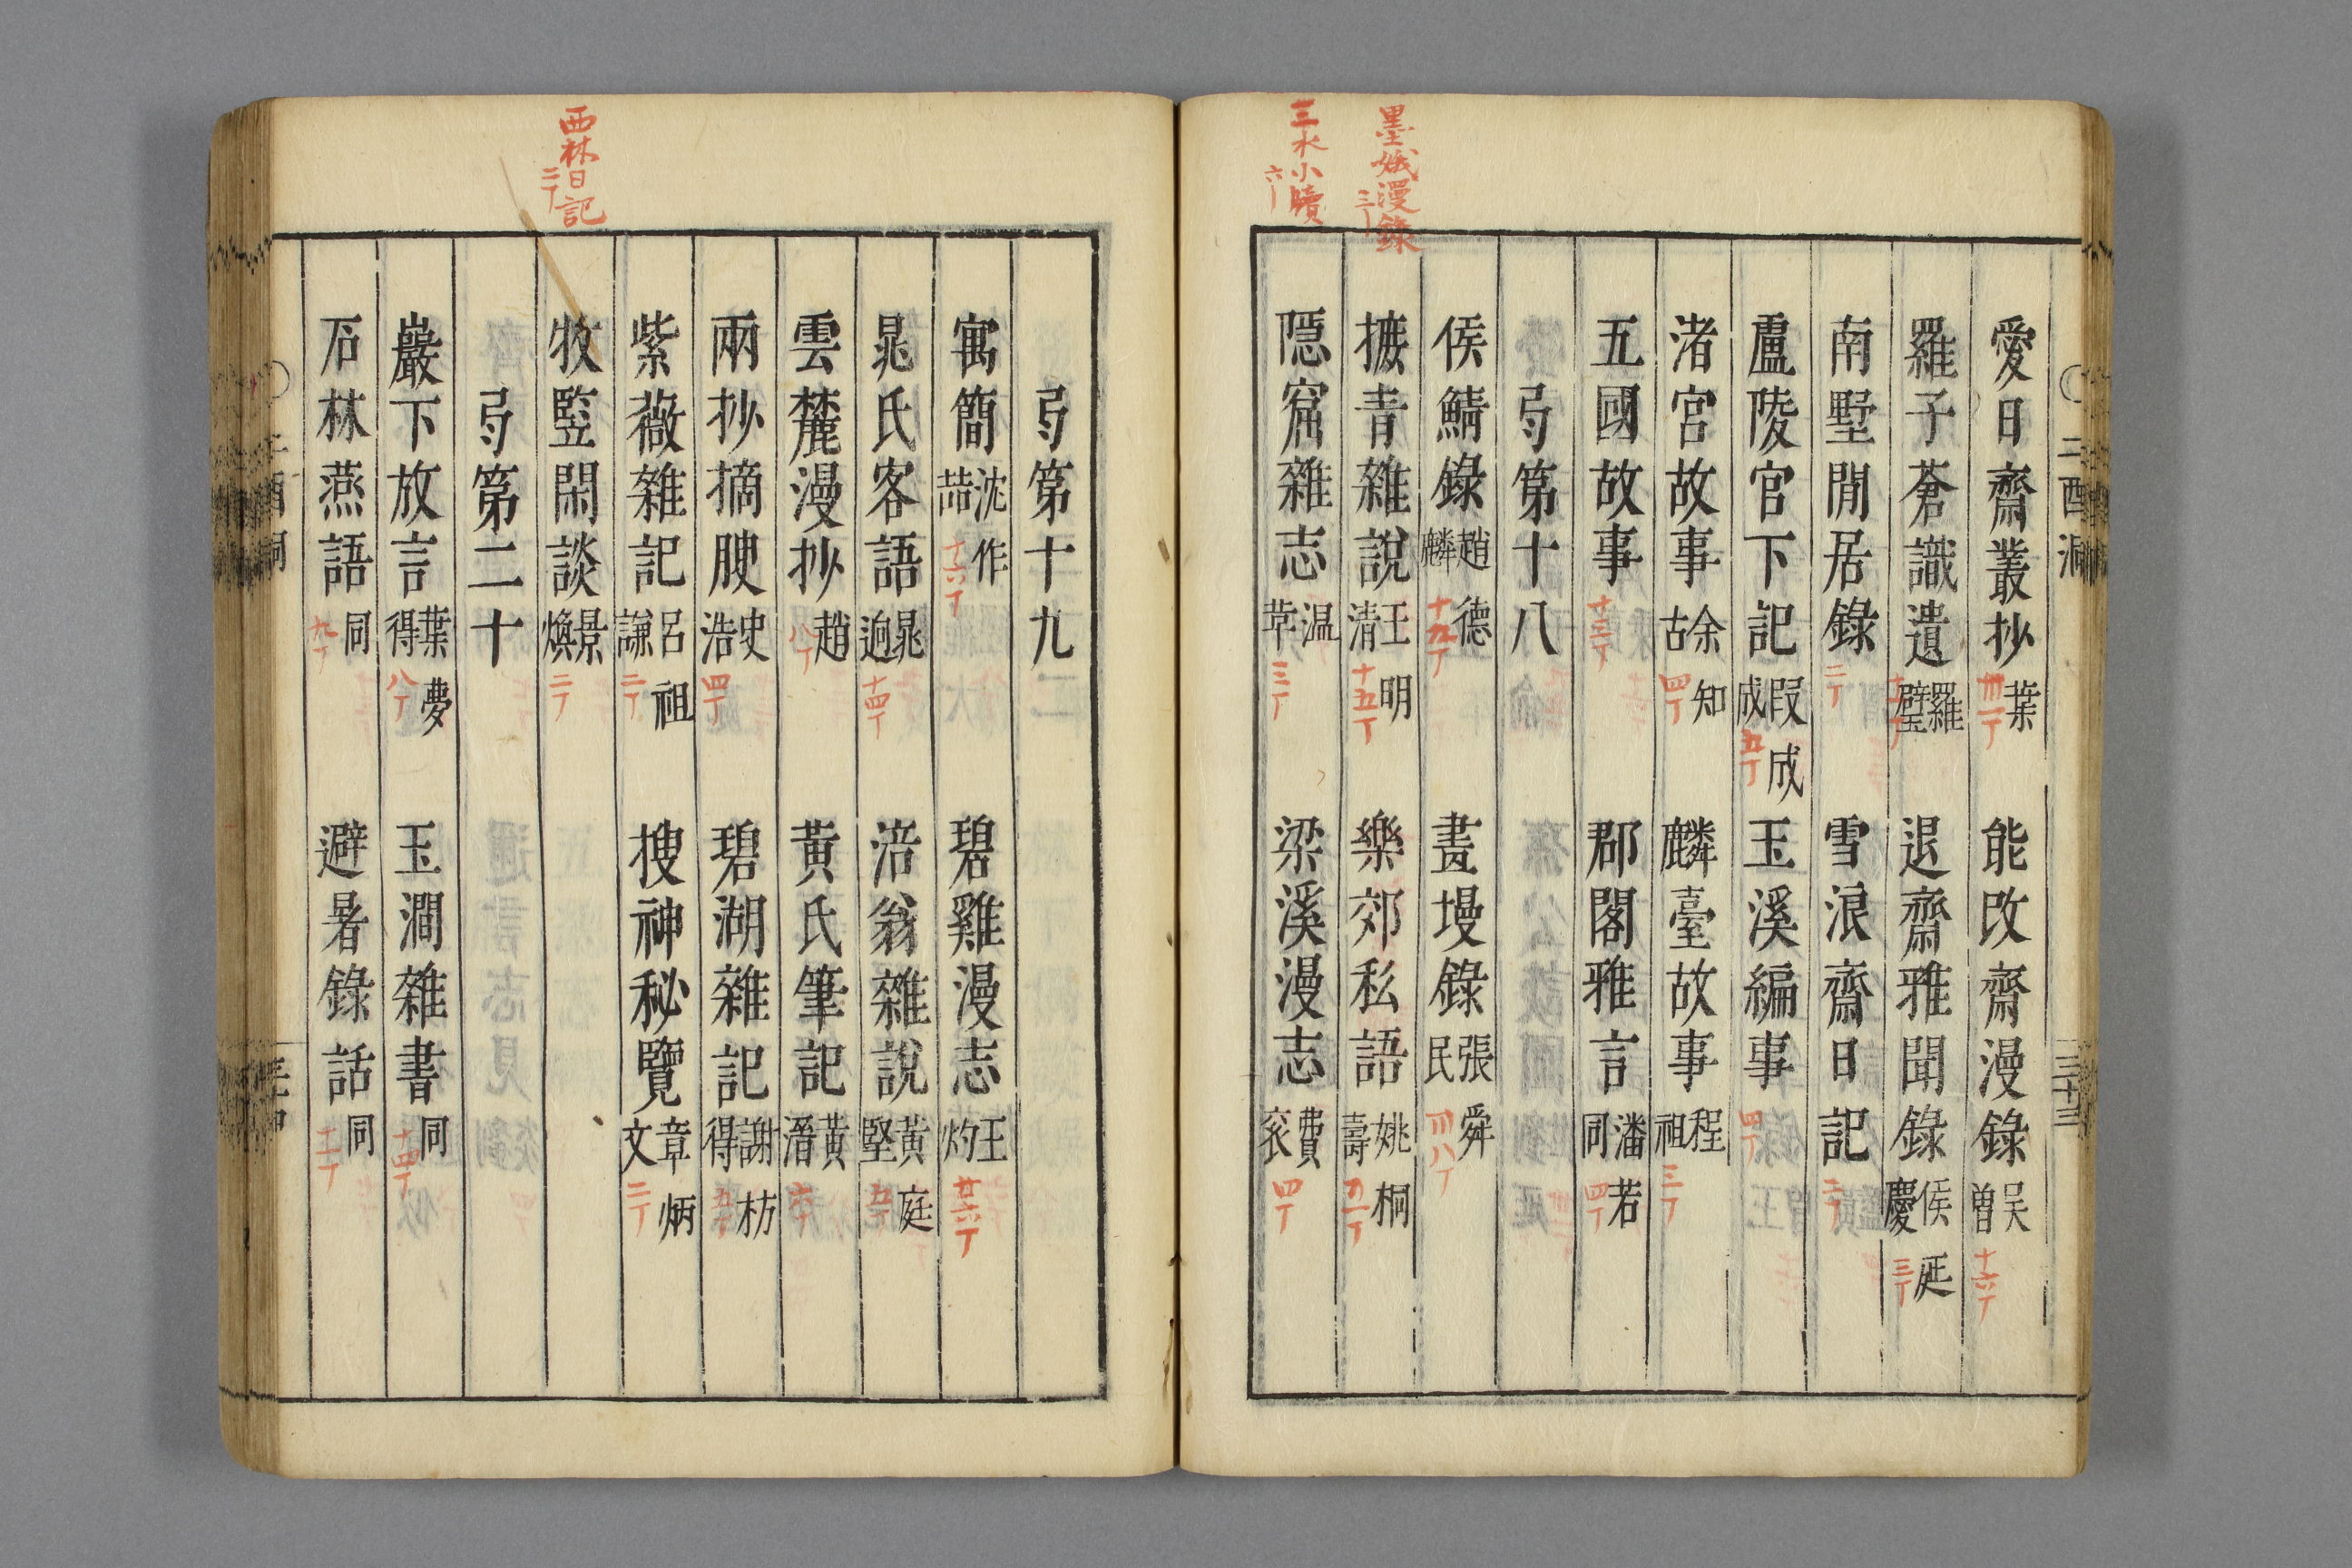 墨娥漫錄 三丁
三水小牘 六丁
二酉洞 三十三
愛日齋叢抄 葉 卅一丁 能改齋漫錄 吳曾 十六丁
羅子蒼識遺 羅璧 退齋雅聞錄 侯延慶 三丁
南墅閒居錄 二丁 雪浪齋日記 二丁
盧陵官下記 叚成成 五丁 玉溪編事 四丁
渚宮故事 余知古 四丁 麟臺故事 程祖 三丁
五國故事 十三丁 郡閣雅言 潘若同 四丁
弓第十八
侯鯖錄 趙德麟 十九丁 畫墁錄 張舜民 卌八丁
摭青雜說 王明清 十五丁 樂郊私語 姚桐壽 九一丁
隱窟雜志 温革 三丁 梁溪漫志 費衮 四丁
西林日記 二丁
弓第十九
寓簡 沈作喆 十六丁 碧雞漫志 王灼 廿六丁
晁氏客語 晁迥 十四丁 涪翁雜說 黃庭堅 五丁
雲麓漫抄 趙 八丁 黃氏筆記 黃溍 六丁
兩抄摘腴 史浩 四丁 碧湖雜記 謝枋得 五丁
紫薇雜記 呂祖謙 二丁 搜神秘覽 章炳文 二丁
牧豎閑談 景煥 二丁
弓第二十
巖下放言 葉夢得 八丁 玉澗雜書 同 十四丁
石林燕語 同 九丁 避暑錄話 同 十一丁